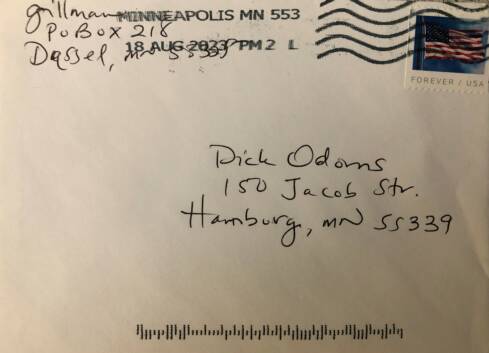 grillman
PO Box 218
Dassel, MN 55325
MINNEAPOLIS MN 553
18 AUG 2023 PM 2 L
FOREVER / USA
Dick Odoms
150 Jacob Str.
Hamburg, MN 55339